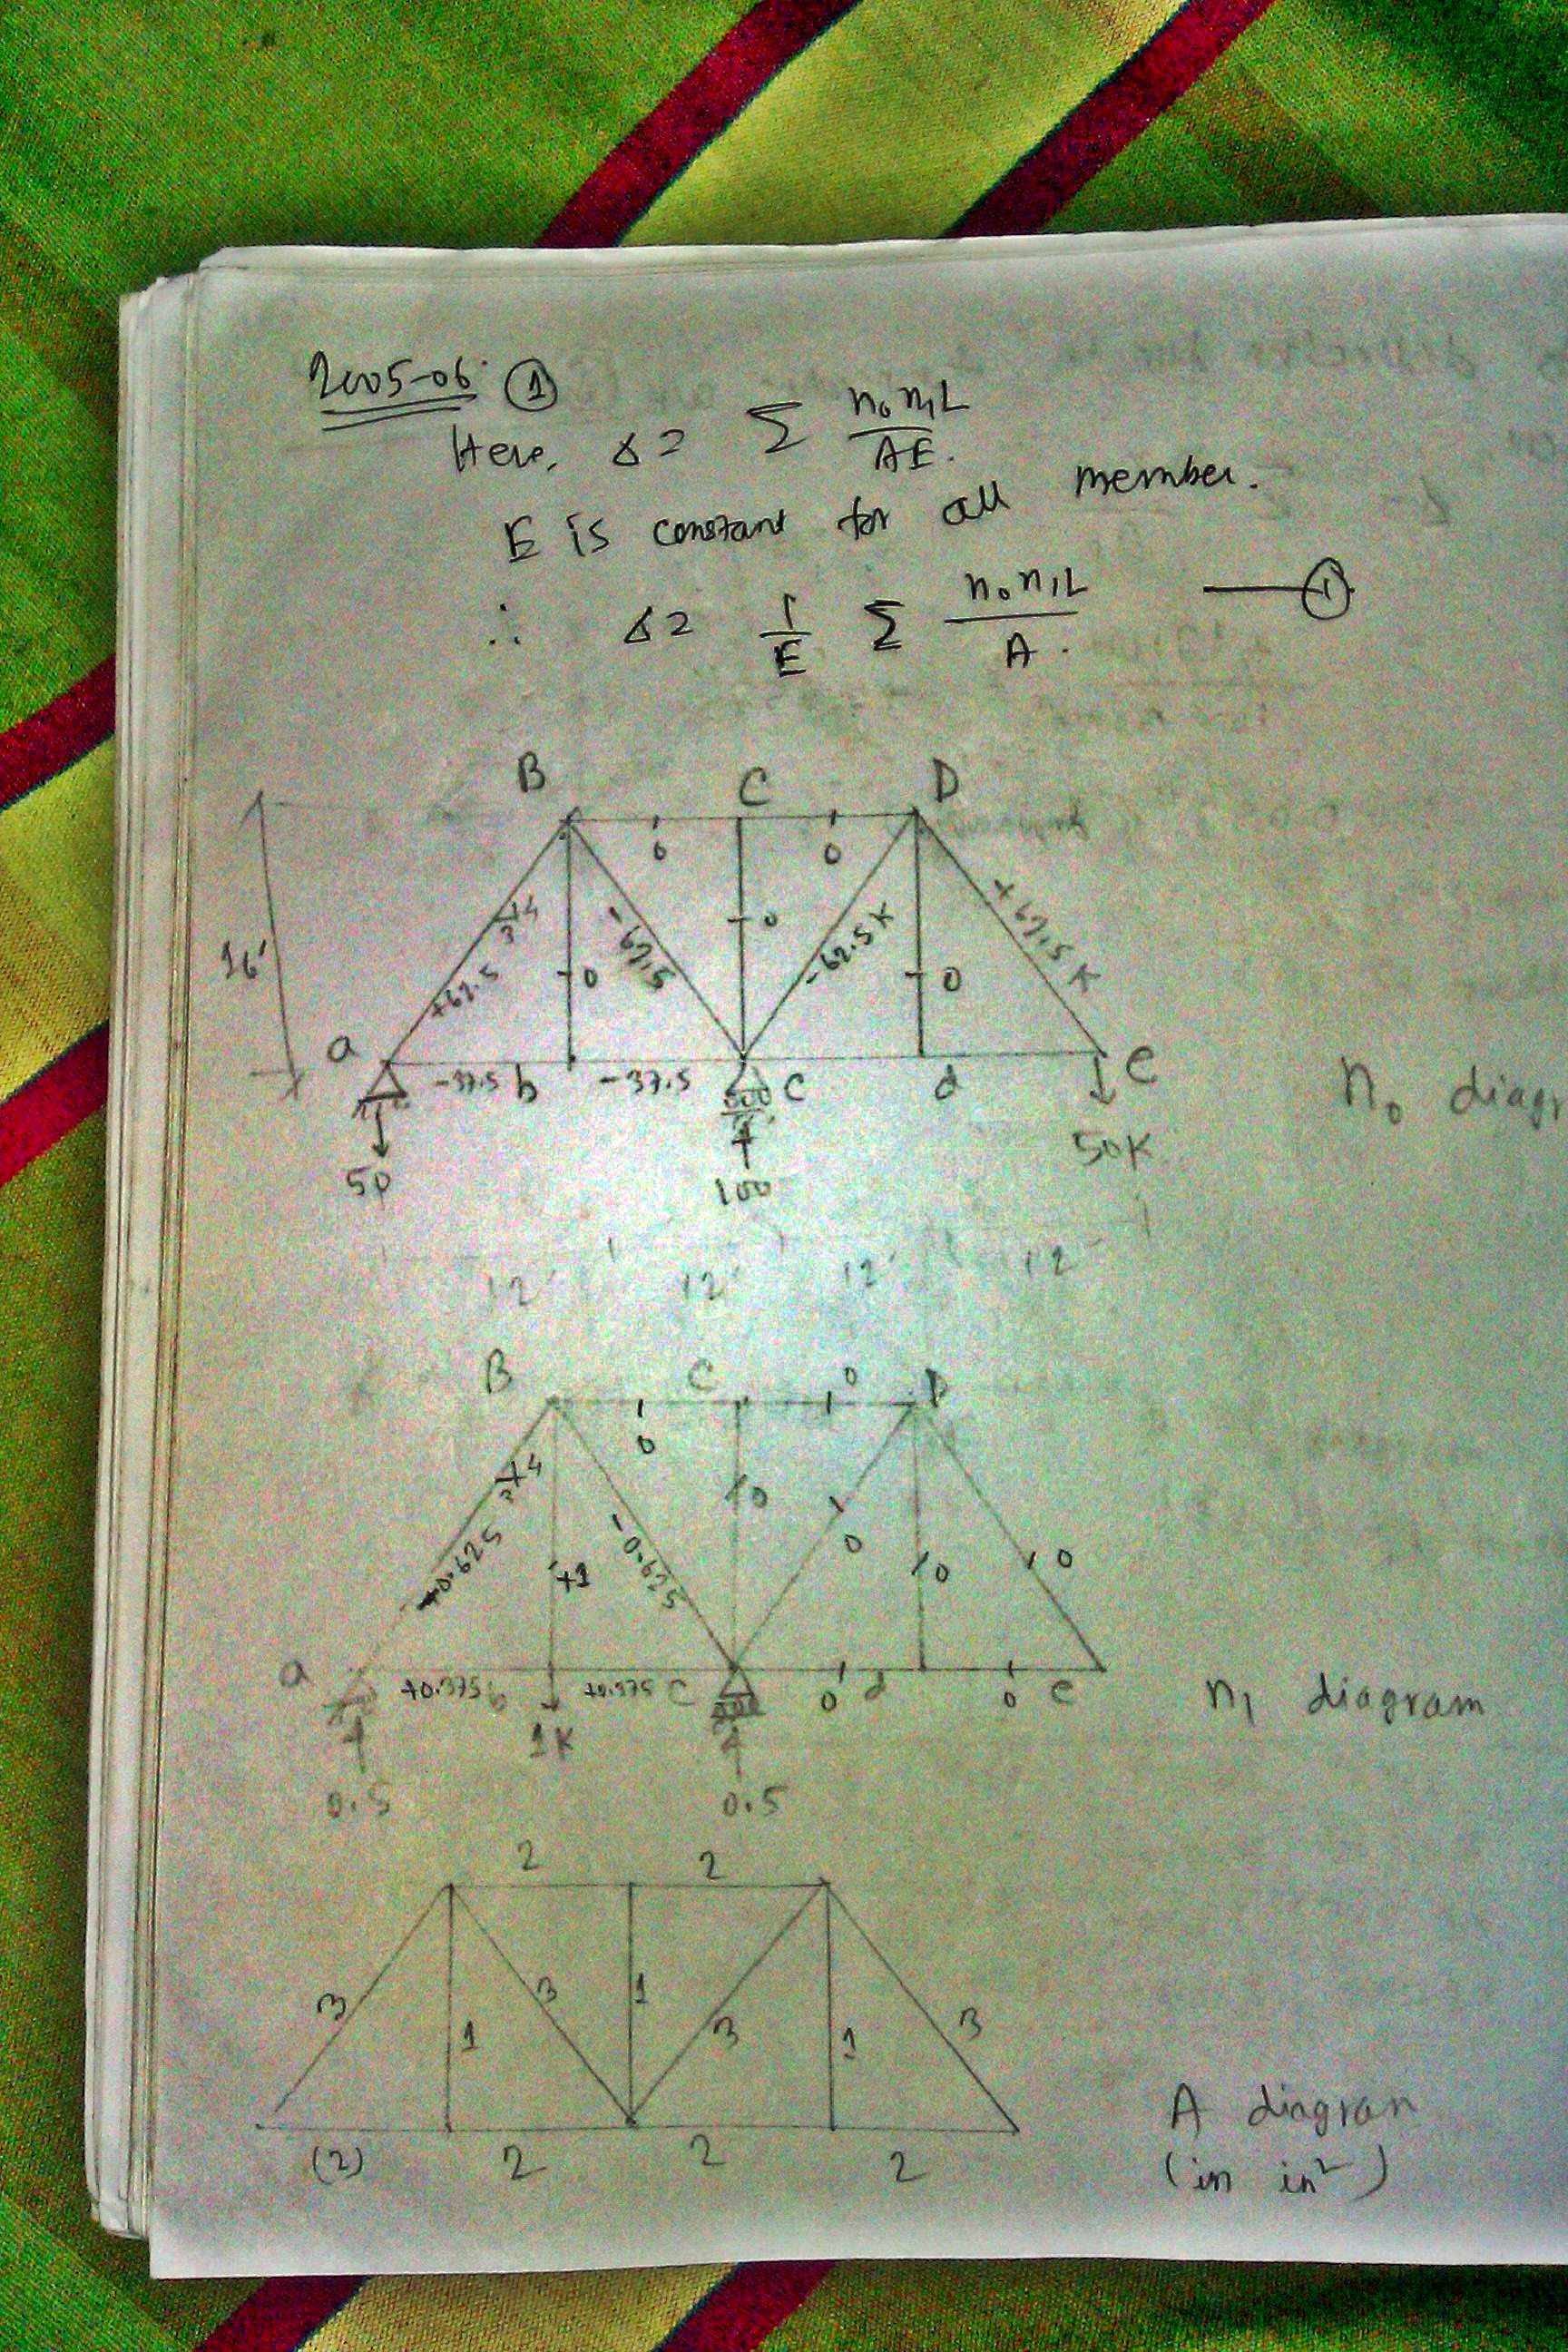 2005-06 ①
Here, Δ = Σ n₀n₁L / AE.
E is constant for all member.
∴ Δ = 1/E Σ n₀n₁L / A. — ①
B C D
0 0
16' 3 4 +62.5 0 -62.5 0 -62.5 K 0 +62.5 K
a -37.5 b -37.5 c d e
50 100 50K
n₀ diagr
12' 12' 12' 12
B C 0 D
0
3 4 +0.625 +1 -0.625 0 0 0 0
a +0.375 b +0.375 c 0 d 0 e
1K
0.5 0.5
n₁ diagram
2 2
3 1 3 1 3 1 3
(2) 2 2 2
A diagram
(in in²)